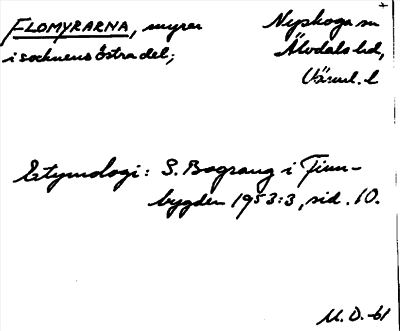 FLOMYRARNA, myrar
i socknens östra del;
Nyskoga sn
Älvdals hd,
Värml. l
Etymologi: S. Bograng i Finn-
bygden 1953:3, sid. 10.
M.O.-61